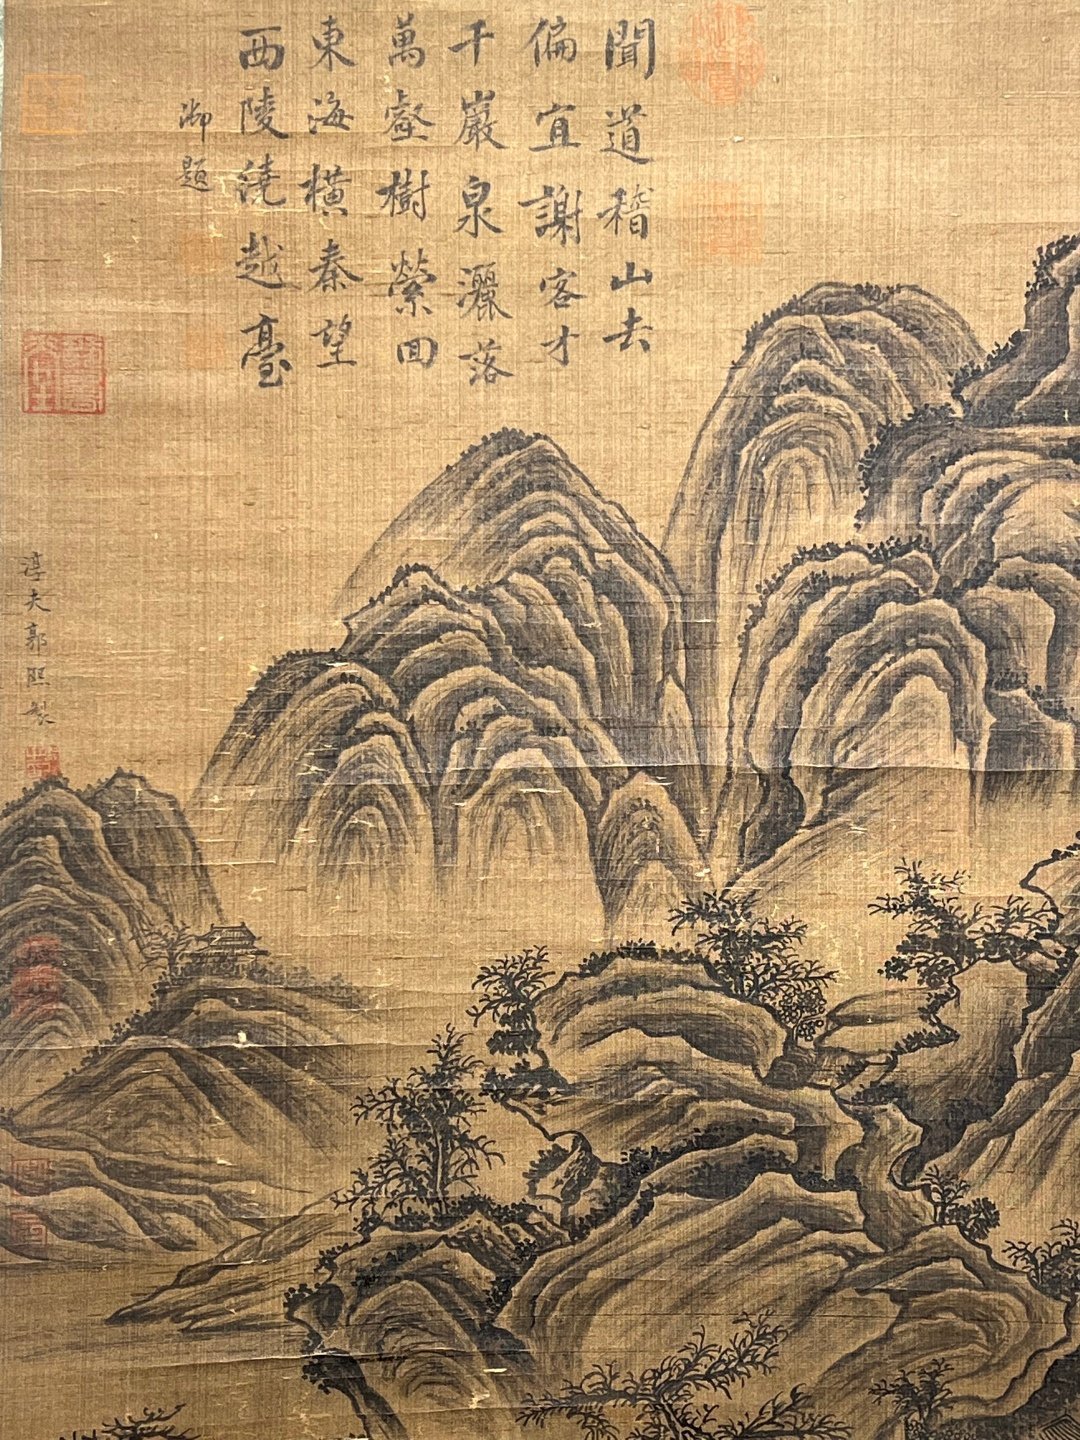 聞道稽山去
偏宜謝客才
千巖泉灑落
萬壑樹縈回
東海橫秦望
西陵繞越臺
御題
淳夫郭熙製